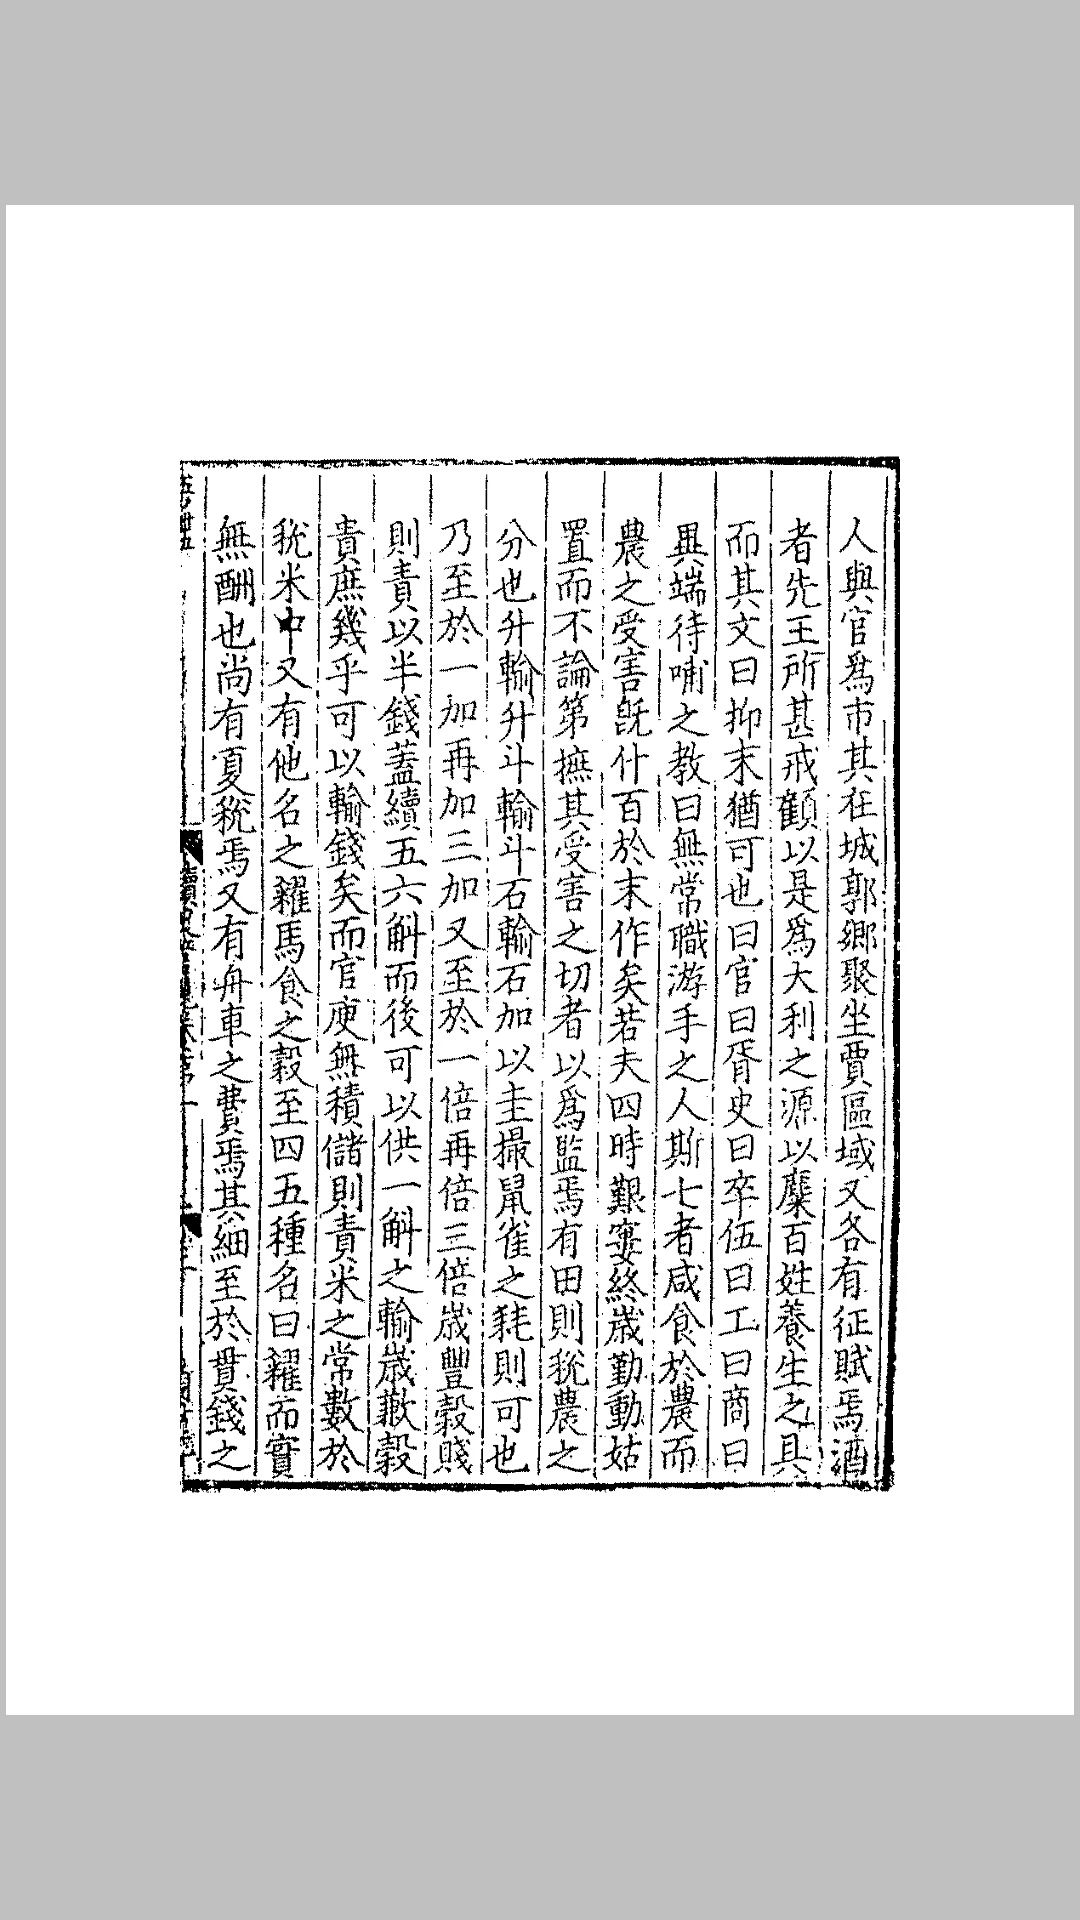 人與官爲市其在城郭鄉聚坐賈區域又各有征賦焉酒
者先王所甚戒顧以是爲大利之源以糜百姓養生之具
而其文曰抑末猶可也曰官曰胥史曰卒伍曰工曰商曰
異端待哺之教曰無常職游手之人斯七者咸食於農而
農之受害旣什百於末作矣若夫四時艱窶終歲勤動姑
置而不論第摭其受害之切者以爲監焉有田則稅農之
分也升輸升斗輸斗石輸石加以圭撮鼠雀之耗則可也
乃至於一加再加三加又至於一倍再倍三倍歲豐穀賤
則責以半錢蓋續五六斛而後可以供一斛之輸歲歉穀
貴庶幾乎可以輸錢矣而官庾無積儲則責米之常數於
稅米中又有他名之糴馬食之穀至四五種名曰糴而實
無酬也尚有夏稅焉又有舟車之費焉其細至於貫錢之